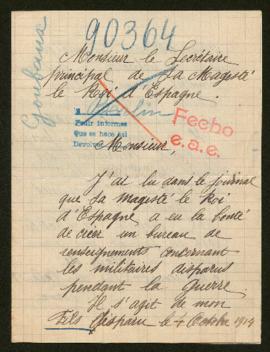 90364
Monsieur le Secrétaire
principal de Sa Magesté
le Roi d'Espagne
Pedir informes
Que se hace aqui
Fecho
e.a.e.
Monsieur,
J'ai lu dans le journal
que Sa magesté le Roi
d'Espagne a eu la bonté
de créer un bureau de
renseignements concernant
les militaires disparus
pendant la Guerre.
Il s'agit de mon
Fils disparu le 4 Octobre 1914